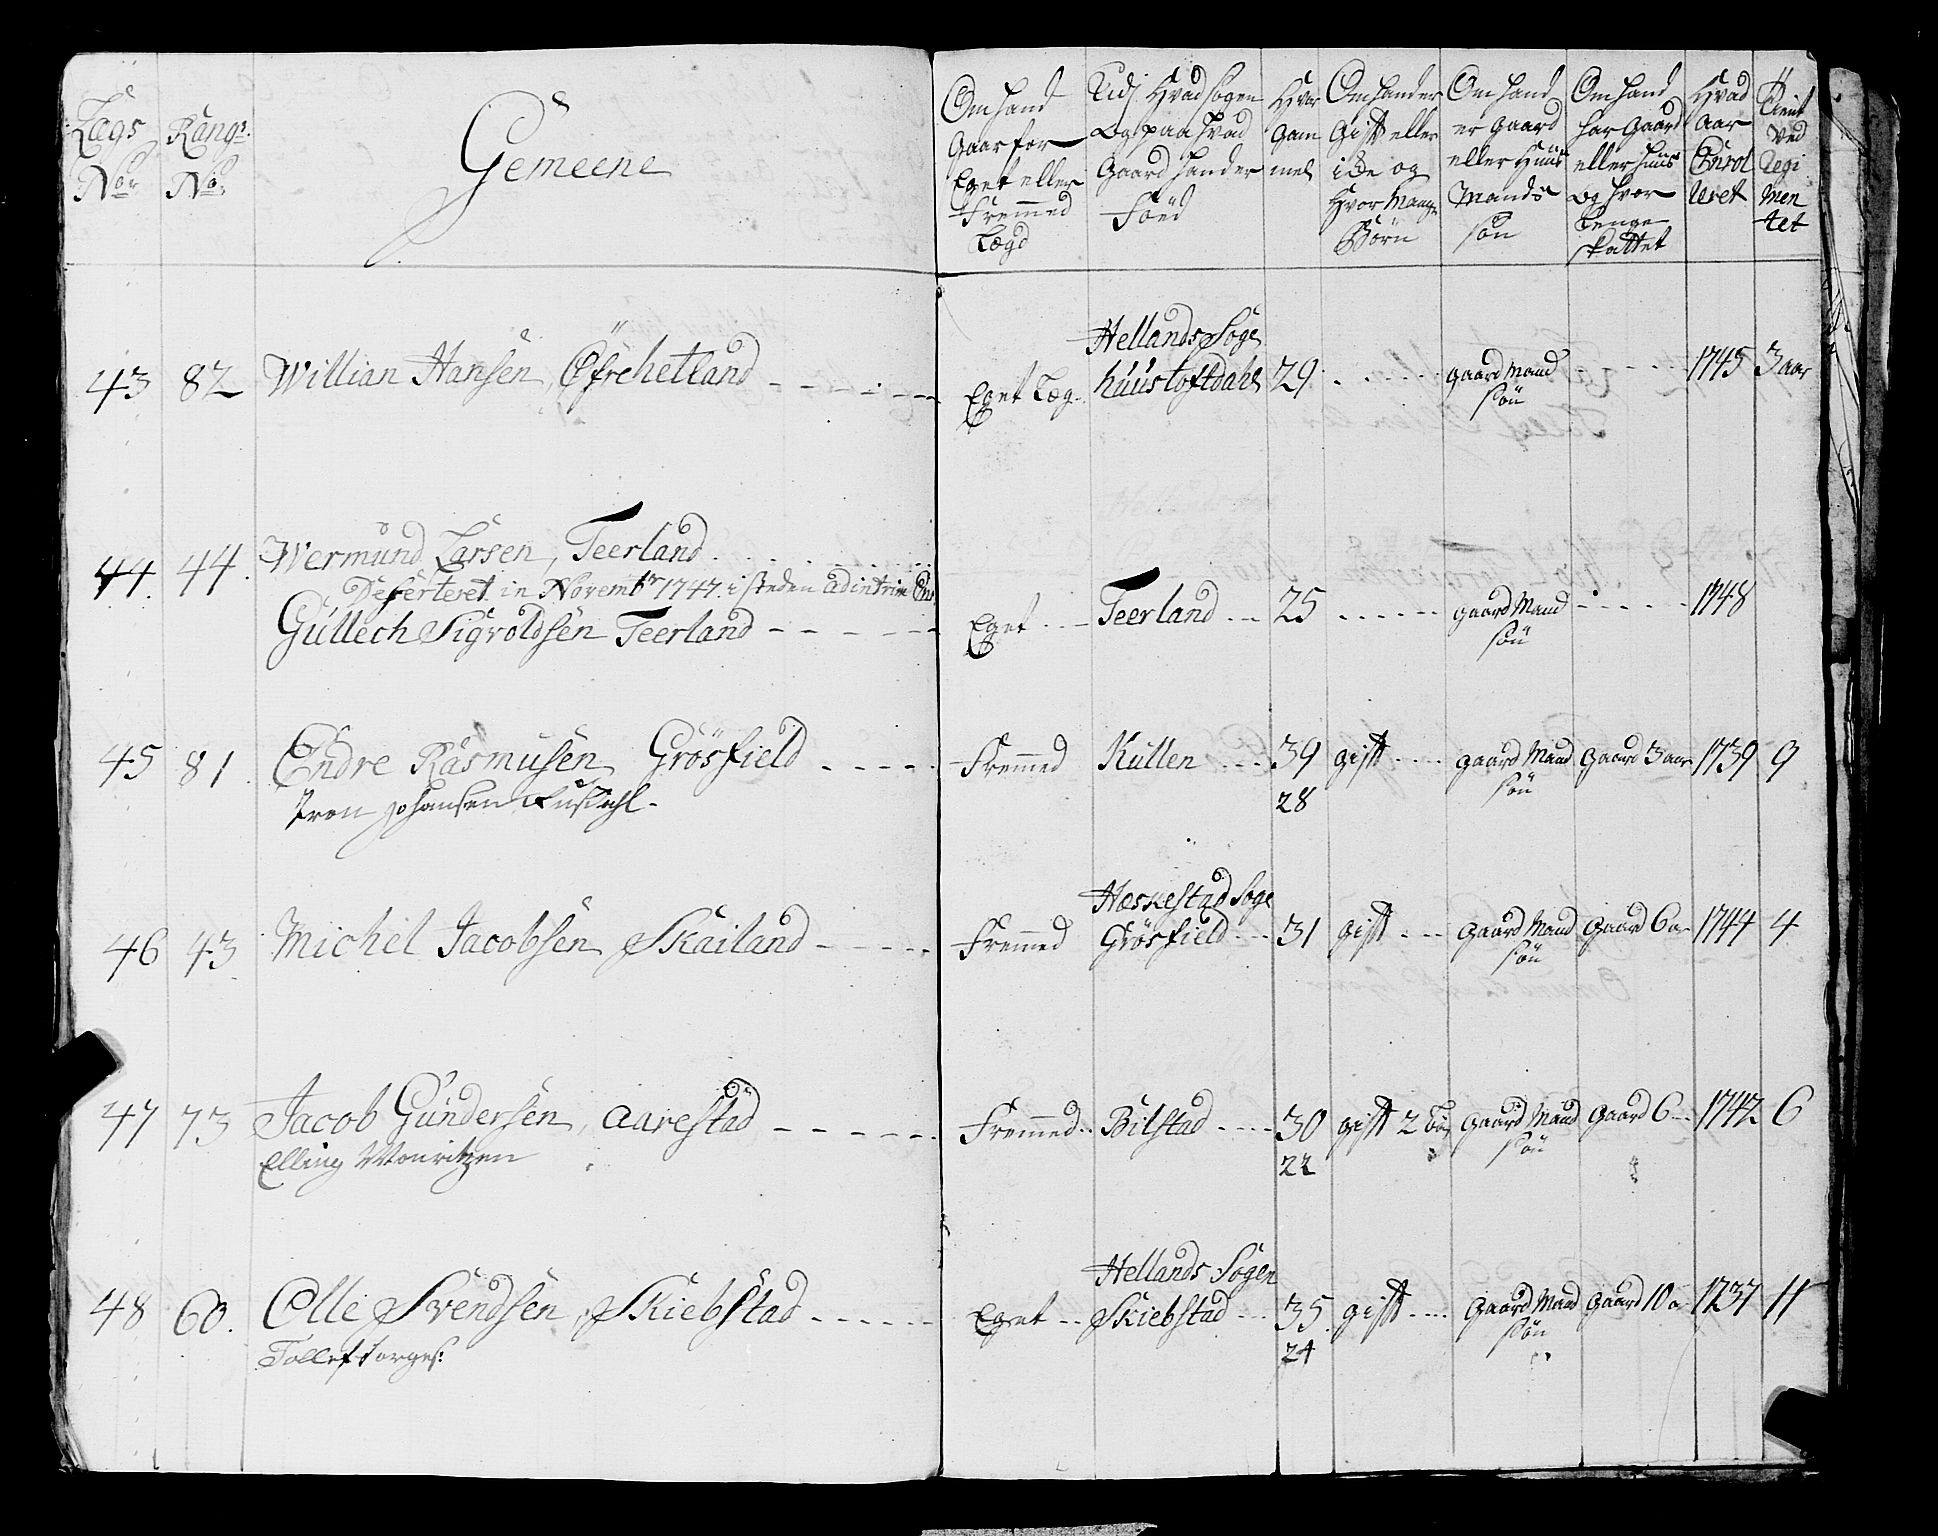 Lægs No
Rangs No
Gemeene
Om hand Gaar for Eget eller Fremmed Lægd
Udj Hvad sogen og paa hvad Gaard hand er Föed
Hvor Gam mel
Om hand er Gift eller i De og Hvor mange Börn
Om hand er Gaard eller Huus Mands sön
Om hand har Gaard eller huus og hvor lenge skattet
Hvad Aar Enrol leret
Tient ved Regi men tet
43 82 Willian Hansen, Öfrehetland Eget Læg Hellands Soge huustoftdahl 29 gaard Mand sön 1745 3 aar
44 44 Wermund Larsen, Teerland
Deserteret in Novembr 1747 i steden ad intrim
Gullech Sigvoldsen Teerland Eget Teerland 25 gaard Mand sön 1748
45 81 Endre Rasmusen Grösfield Fremmed Kullen 39 gift gaard Mand sön Gaard 3 aar 1739 9
Iron Johansen 28
46 43 Michel Jacobsen Skailand Fremmed Heskestad Soge Grösfield 31 gift gaard Mand sön Gaard 6 a 1744 4
47 73 Jacob Gundersen, Aarestad Fremmed Bilstad 30 gift 2 bör gaard Mand sön Gaard 6 1742 6
Elling Mouritzen 22
48 60 Olle Svendsen, Skiebstad Eget Hellands Sogen Skiebstad 35 gift gaard Mand sön Gaard 10 a 1737 11
Tollef Torges: 24